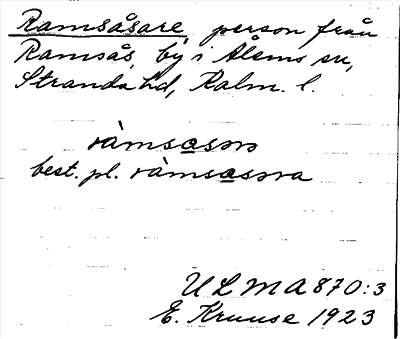 Ramsåsare, person från
Ramsås, by i Alems sn,
Stranda hd, Kalm. l.
ràmsasərə
best. pl. ràmsasəra
ULMA 870:3
E. Kruuse 1923